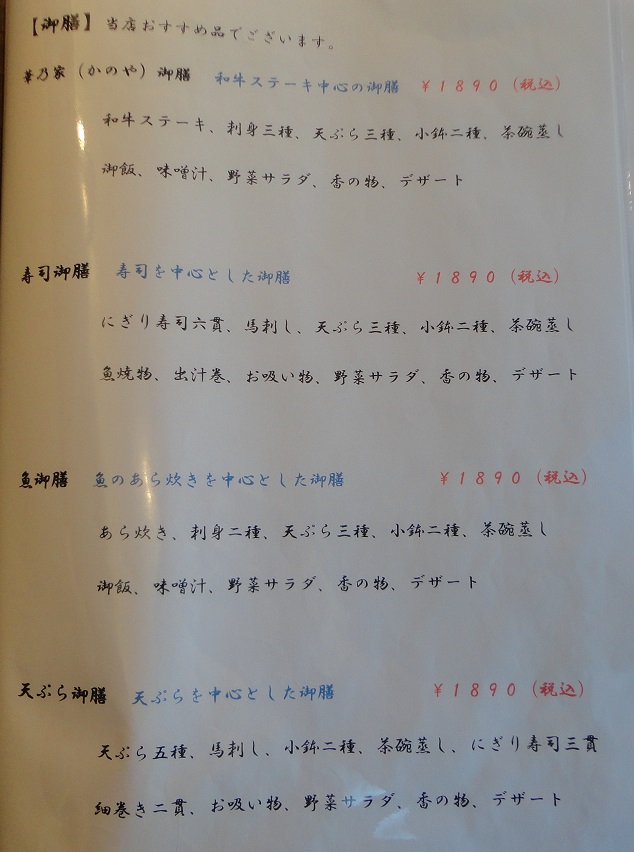 【御膳】当店おすすめ品でございます。
華乃家（かのや）御膳 和牛ステーキ中心の御膳 ￥１８９０（税込）
和牛ステーキ、刺身三種、天ぷら三種、小鉢二種、茶碗蒸し
御飯、味噌汁、野菜サラダ、香の物、デザート
寿司御膳 寿司を中心とした御膳 ￥１８９０（税込）
にぎり寿司六貫、馬刺し、天ぷら三種、小鉢二種、茶碗蒸し
魚焼物、出汁巻、お吸い物、野菜サラダ、香の物、デザート
魚御膳 魚のあら炊きを中心とした御膳 ￥１８９０（税込）
あら炊き、刺身二種、天ぷら三種、小鉢二種、茶碗蒸し
御飯、味噌汁、野菜サラダ、香の物、デザート
天ぷら御膳 天ぷらを中心とした御膳 ￥１８９０（税込）
天ぷら五種、馬刺し、小鉢二種、茶碗蒸し、にぎり寿司三貫
細巻き二貫、お吸い物、野菜サラダ、香の物、デザート